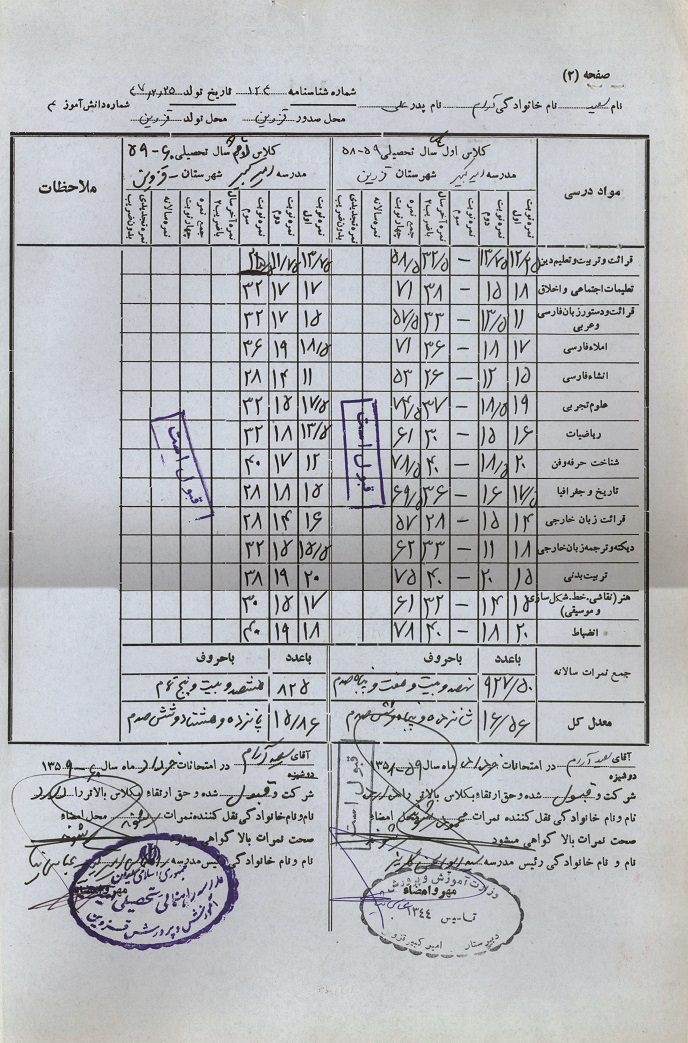 صفحه (۲)
نام سعید نام خانوادگی آرام نام پدر علی شماره شناسنامه ۱۲۴ تاریخ تولد ۴۷/۲/۲۵ شماره دانش‌آموز
محل صدور قزوین محل تولد قزوین
مواد درسی
کلاس اول سال تحصیلی ۵۹-۵۸
مدرسه امیرکبیر شهرستان قزوین
کلاس دوم سال تحصیلی ۶۰-۵۹
مدرسه امیرکبیر شهرستان قزوین
ملاحظات
نمره نوبت اول
نمره نوبت دوم
نمره نوبت سوم
نمره آخر سال باضریب ۲
جمع نمره چهار نوبت
نمره سالانه
نمره تجدیدی بدون ضریب
نمره نوبت اول
نمره نوبت دوم
نمره نوبت سوم
نمره آخر سال باضریب ۲
جمع نمره چهار نوبت
نمره سالانه
نمره تجدیدی بدون ضریب
قرائت و تربیت و تعلیم دین ۱۳/۷۵ — ۳۲/۵ ۵۸/۵ ۱۳/۷۵ ۱۱/۷۵
تعلیمات اجتماعی و اخلاق ۱۸ ۱۵ — ۳۸ ۷۱ ۱۷ ۱۷ ۳۲
قرائت و دستور زبان فارسی و عربی ۱۱ ۱۳/۵ — ۳۳ ۵۷/۵ ۱۵ ۱۷ ۳۲
املاء فارسی ۱۷ ۱۸ — ۳۶ ۷۱ ۱۸/۵ ۱۹ ۳۶
انشاء فارسی ۱۵ ۱۲ — ۲۶ ۵۳ ۱۱ ۱۴ ۲۸
علوم تجربی ۱۹ ۱۸/۵ — ۳۷ ۷۴/۵ ۱۷/۵ ۱۵ ۳۲
ریاضیات ۱۶ ۱۵ — ۳۰ ۶۱ ۱۳/۵ ۱۸ ۳۲
شناخت حرفه و فن ۲۰ ۱۸/۵ — ۴۰ ۷۸/۵ ۱۲ ۱۷ ۴۰
تاریخ و جغرافیا ۱۷/۵ ۱۶ — ۳۶ ۶۹/۵ ۱۵ ۱۸ ۲۸
قرائت زبان خارجی ۱۴ ۱۵ — ۲۸ ۵۷ ۱۶ ۱۴ ۲۸
دیکته و ترجمه زبان خارجی ۱۸ ۱۱ — ۳۳ ۶۲ ۱۵/۵ ۱۵ ۳۲
تربیت بدنی ۱۵ ۲۰ — ۴۰ ۷۵ ۲۰ ۱۹ ۳۸
هنر (نقاشی. خط. شکل سازی و موسیقی) ۱۵ ۱۴ — ۳۲ ۶۱ ۱۷ ۱۵ ۳۰
انضباط ۲۰ ۱۸ — ۴۰ ۷۸ ۱۸ ۱۹ ۴۰
قبول است
قبول است
باعدد باحروف باعدد باحروف
جمع نمرات سالانه ۹۲۷/۵۰ نهصد و بیست و هفت و پنجاه صدم ۸۲۵ هشتصد و بیست و پنج تمام
معدل کل ۱۶/۵۶ شانزده و پنجاه و شش صدم ۱۵/۸۶ پانزده و هشتاد و شش صدم
آقای سعید آرام در امتحانات خرداد ماه سال ۵۹-۱۳۵۸
دوشیزه
شرکت و قبول شده و حق ارتقاء بکلاس بالاتر را دارد
نام و نام خانوادگی نقل کننده نمرات محل امضاء
صحت نمرات بالا گواهی میشود
نام و نام خانوادگی رئیس مدرسه
مهر و امضاء
قبول است
وزارت آموزش و پرورش
تاسیس ۱۳۴۴
دبیرستان امیرکبیر قزوین
آقای سعید آرام در امتحانات خرداد ماه سال ۶۰-۱۳۵۹
دوشیزه
شرکت و قبول شده و حق ارتقاء بکلاس بالاتر را دارد
نام و نام خانوادگی نقل کننده نمرات محل امضاء
صحت نمرات بالا گواهی میشود
نام و نام خانوادگی رئیس مدرسه
مهر و امضاء
جمهوری اسلامی ایران
مدرسه راهنمائی تحصیلی
آموزش و پرورش قزوین